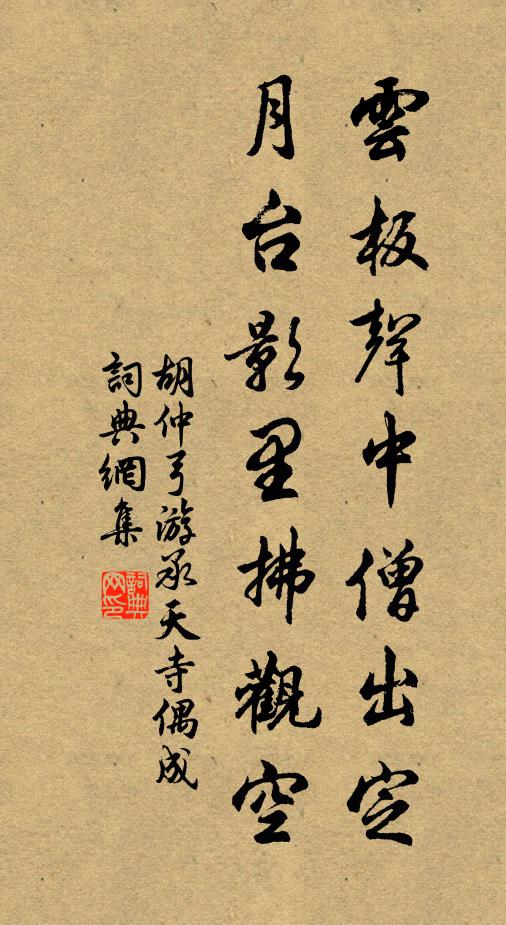 雲板聲中僧出定
月台影里拂觀空
胡仲弓游承天寺偶成
詞典網集
詞典網印